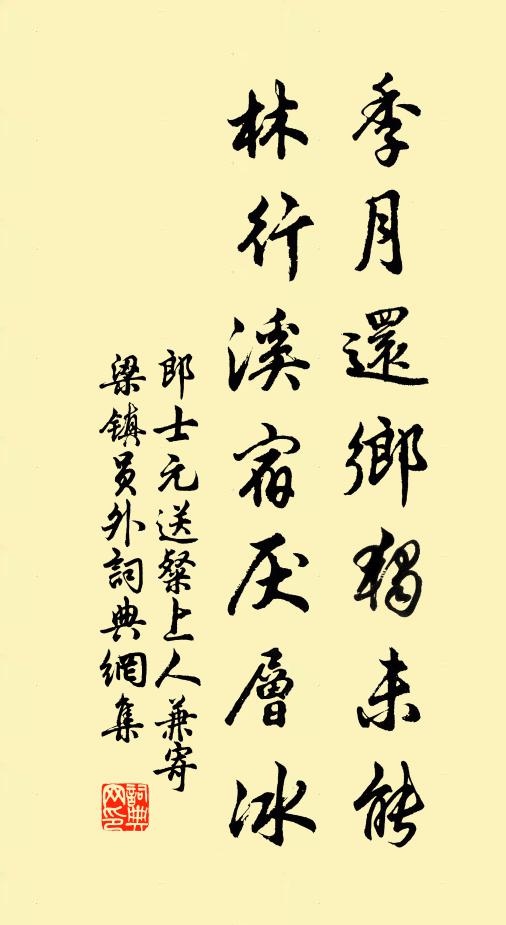 季月還鄉獨未能
林行溪宿厌層冰
郎士元送粲上人兼寄
梁镇员外詞典網集
詞典網印